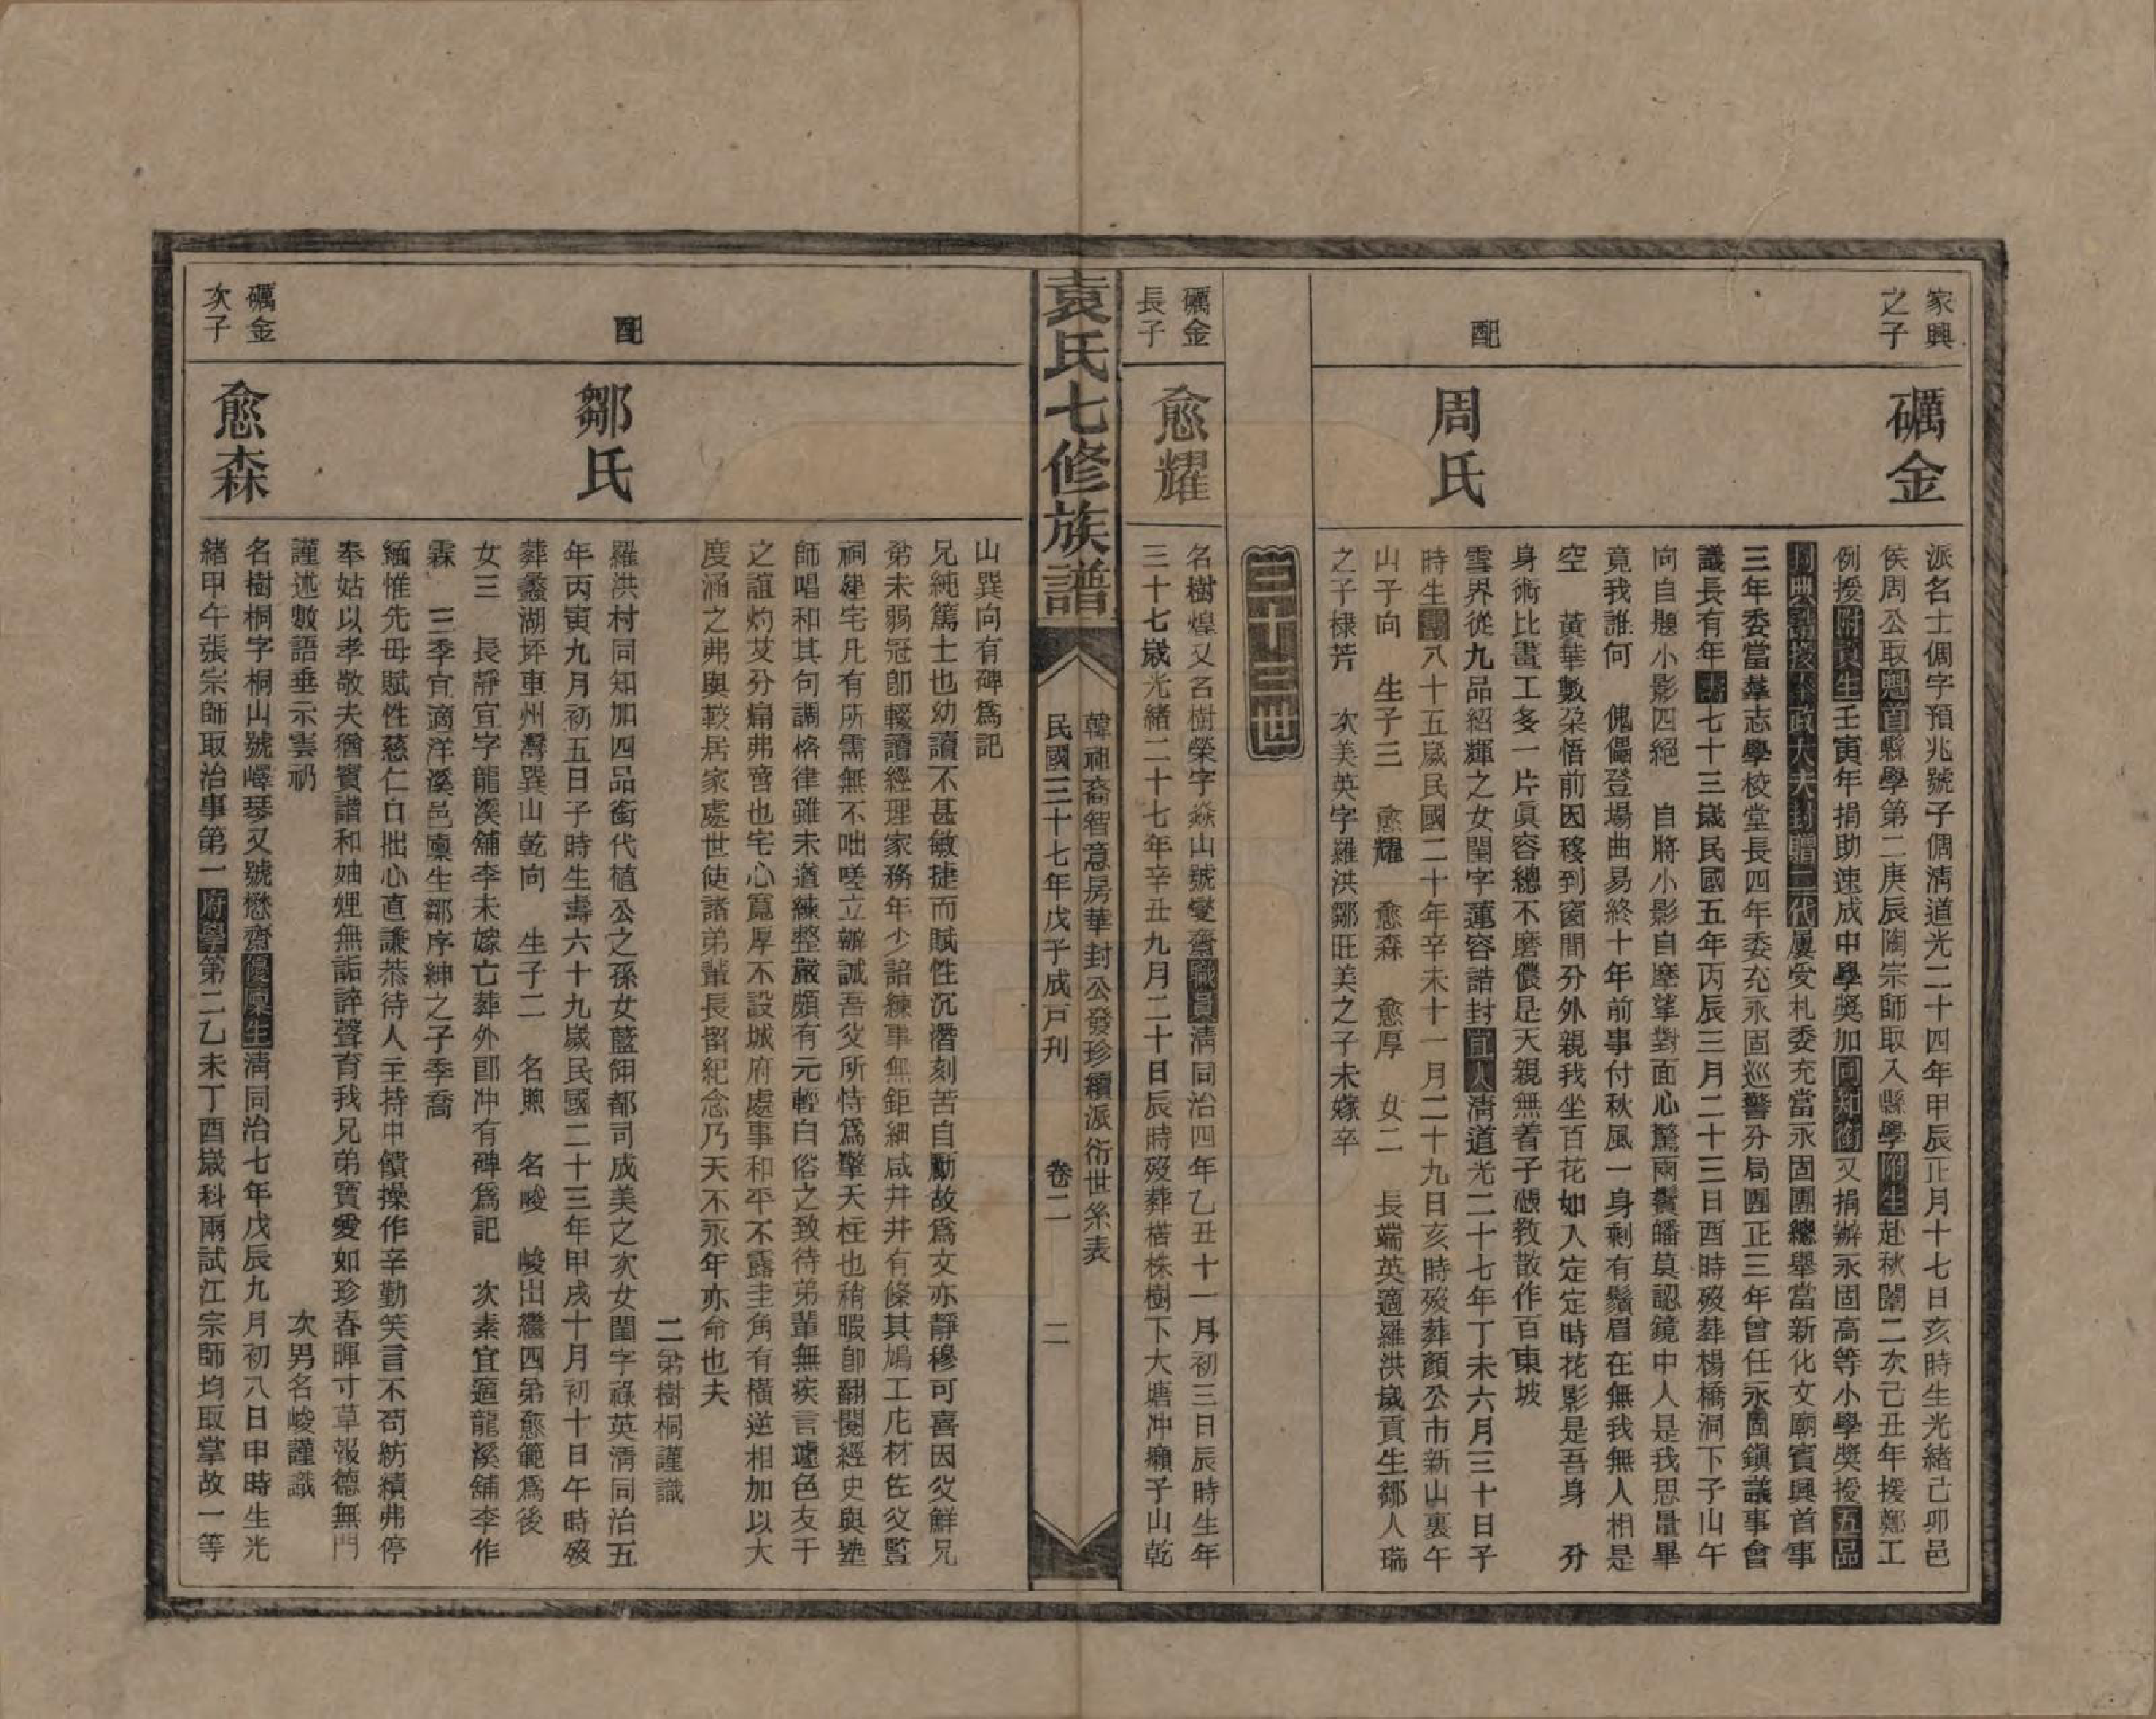 家興
之子
礪金
派名士倜字預兆號子倜淸道光二十四年甲辰正月十七日亥時生光緒己卯邑
侯周公取魁首縣學第二庚辰陶宗師取入縣學附生赴秋闈二次己丑年援鄭工
例授附貢生壬寅年捐助速成中學奬加同知銜又捐辦永固高等小學奬授五品
封典誥授奉政大夫封贈二代屢受札委充當永固團總舉當新化文廟賓興首事
三年委當羣志學校堂長四年委充永固巡警分局團正三年曾任永固鎭議事會
議長有年壽七十三歲民國五年丙辰三月二十三日酉時歿葬楊橋洞下子山午
向自題小影四絕　自將小影自摩挲對面心驚兩鬢皤莫認鏡中人是我思量畢
竟我誰何　傀儡登場曲易終十年前事付秋風一身剩有鬚眉在無我無人相是
空　黃華數朶悟前因移到窗間分外親我坐百花如入定定時花影是吾身　分
身術比畫工多一片眞容總不磨儂是天親無着子憑敎散作百東坡
配
周氏
雪界從九品紹輝之女閨字蓮容誥封宜人淸道光二十七年丁未六月三十日子
時生壽八十五歲民國二十年辛未十一月二十九日亥時歿葬顏公市新山裏午
山子向　生子三　愈耀　愈森　愈厚　女二　長端英適羅洪歲貢生鄒人瑞
之子棣芳　次美英字羅洪鄒旺美之子未嫁卒
三十三世
礪金
長子
愈耀
名樹煌又名樹榮字焱山號燮齋職員淸同治四年乙丑十一月初三日辰時生年
三十七歲光緒二十七年辛丑九月二十日辰時歿葬楮株樹下大塘冲癩子山乾
袁氏七修族譜
韓祖裔智意房華封公發珍續派衍世系表
民國三十七年戊子成戸刊　卷二　二
山巽向有碑爲記
兄純篤士也幼讀不甚敏捷而賦性沉潛刻苦自勵故爲文亦靜穆可喜因父鮮兄
弟未弱冠卽輟讀經理家務年少諳練事無鉅細咸井井有條其鳩工庀材佐父監
祠建宅凡有所需無不咄嗟立辦誠吾父所恃爲擎天柱也稍暇卽翻閱經史與塾
師唱和其句調格律雖未遒練整嚴頗有元輕白俗之致待弟輩無疾言遽色友于
之誼灼艾分痛弗啻也宅心寬厚不設城府處事和平不露圭角有橫逆相加以大
度涵之弗與較居家處世使諸弟輩長留紀念乃天不永年亦命也夫
二弟樹桐謹識
配
鄒氏
羅洪村同知加四品銜代植公之孫女藍翎都司成美之次女閨字祿英淸同治五
年丙寅九月初五日子時生壽六十九歲民國二十三年甲戌十月初十日午時歿
葬蠡湖坪車州灣巽山乾向　生子二　名煦　名峻　峻出繼四弟愈範爲後
女三　長靜宜字龍溪舖李未嫁亡葬外卽冲有碑爲記　次素宜適龍溪舖李作
霖　三季宜適洋溪邑廩生鄒序紳之子季喬
緬惟先母賦性慈仁口拙心直謙恭待人主持中饋操作辛勤笑言不苟紡績弗停
奉姑以孝敬夫猶賓諧和妯娌無詬誶聲育我兄弟寶愛如珍春暉寸草報德無門
謹述數語垂示雲礽
次男名峻謹識
礪金
次子
愈森
名樹桐字桐山號嶧琴又號懋齋優廩生淸同治七年戊辰九月初八日申時生光
緒甲午張宗師取治事第一府學第二乙未丁酉歲科兩試江宗師均取掌故一等